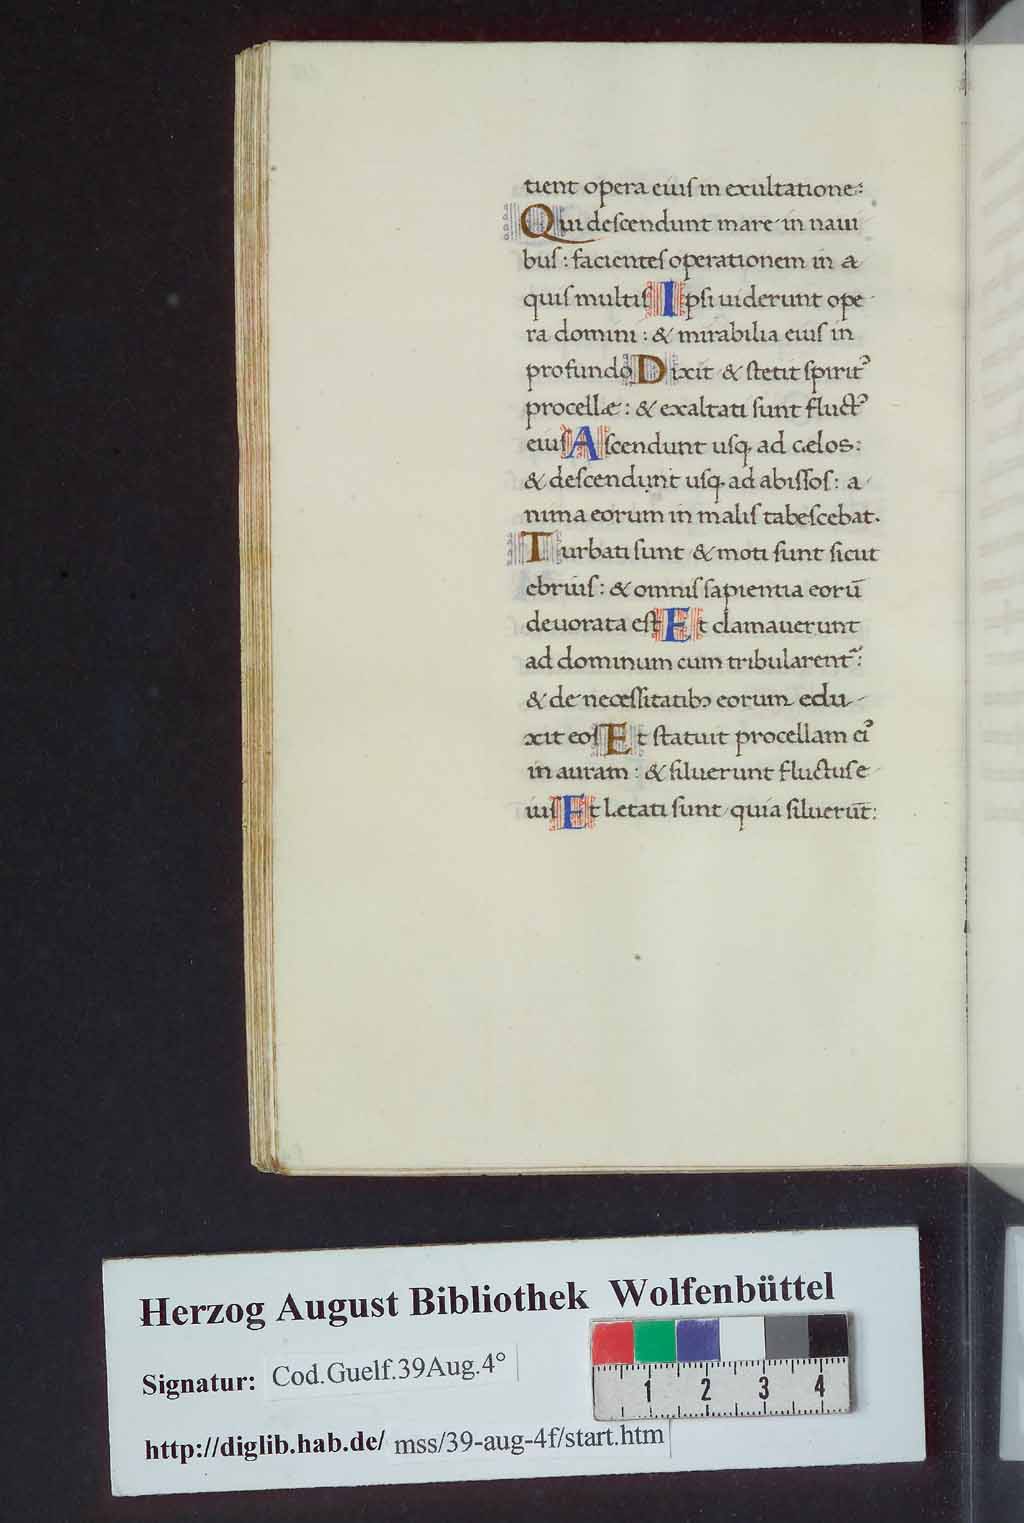 tient opera eiuſ in exultatione:
Qui deſcendunt mare in naui
buſ: facienteſ operationem in a
quiſ multiſ Ipſi uiderunt ope
ra domini: & mirabilia eiuſ in
profundo Dixit & ſtetit ſpiritꝰ
procellæ: & exaltati ſunt fluctꝰ
eiuſ Aſcendunt uſq, ad cælos:
& deſcendunt uſq, ad abiſſoſ: a
nima eorum in maliſ tabeſcebat.
Turbati ſunt & moti ſunt ſicut
ebriuſ: & omniſ ſapientia eorū
deuorata eſt Et clamauerunt
ad dominum cum tribularent᷑:
& de neceſſitatibꝫ eorum edu
xit eoſ Et ſtatuit procellam eiꝰ
in auram: & ſiluerunt fluctuſ e
iuſ Et lętati ſunt quia ſiluerūt:
Herzog August Bibliothek Wolfenbüttel
Signatur: Cod.Guelf.39Aug.4°
1 2 3 4
http://diglib.hab.de/ mss/39-aug-4f/start.htm